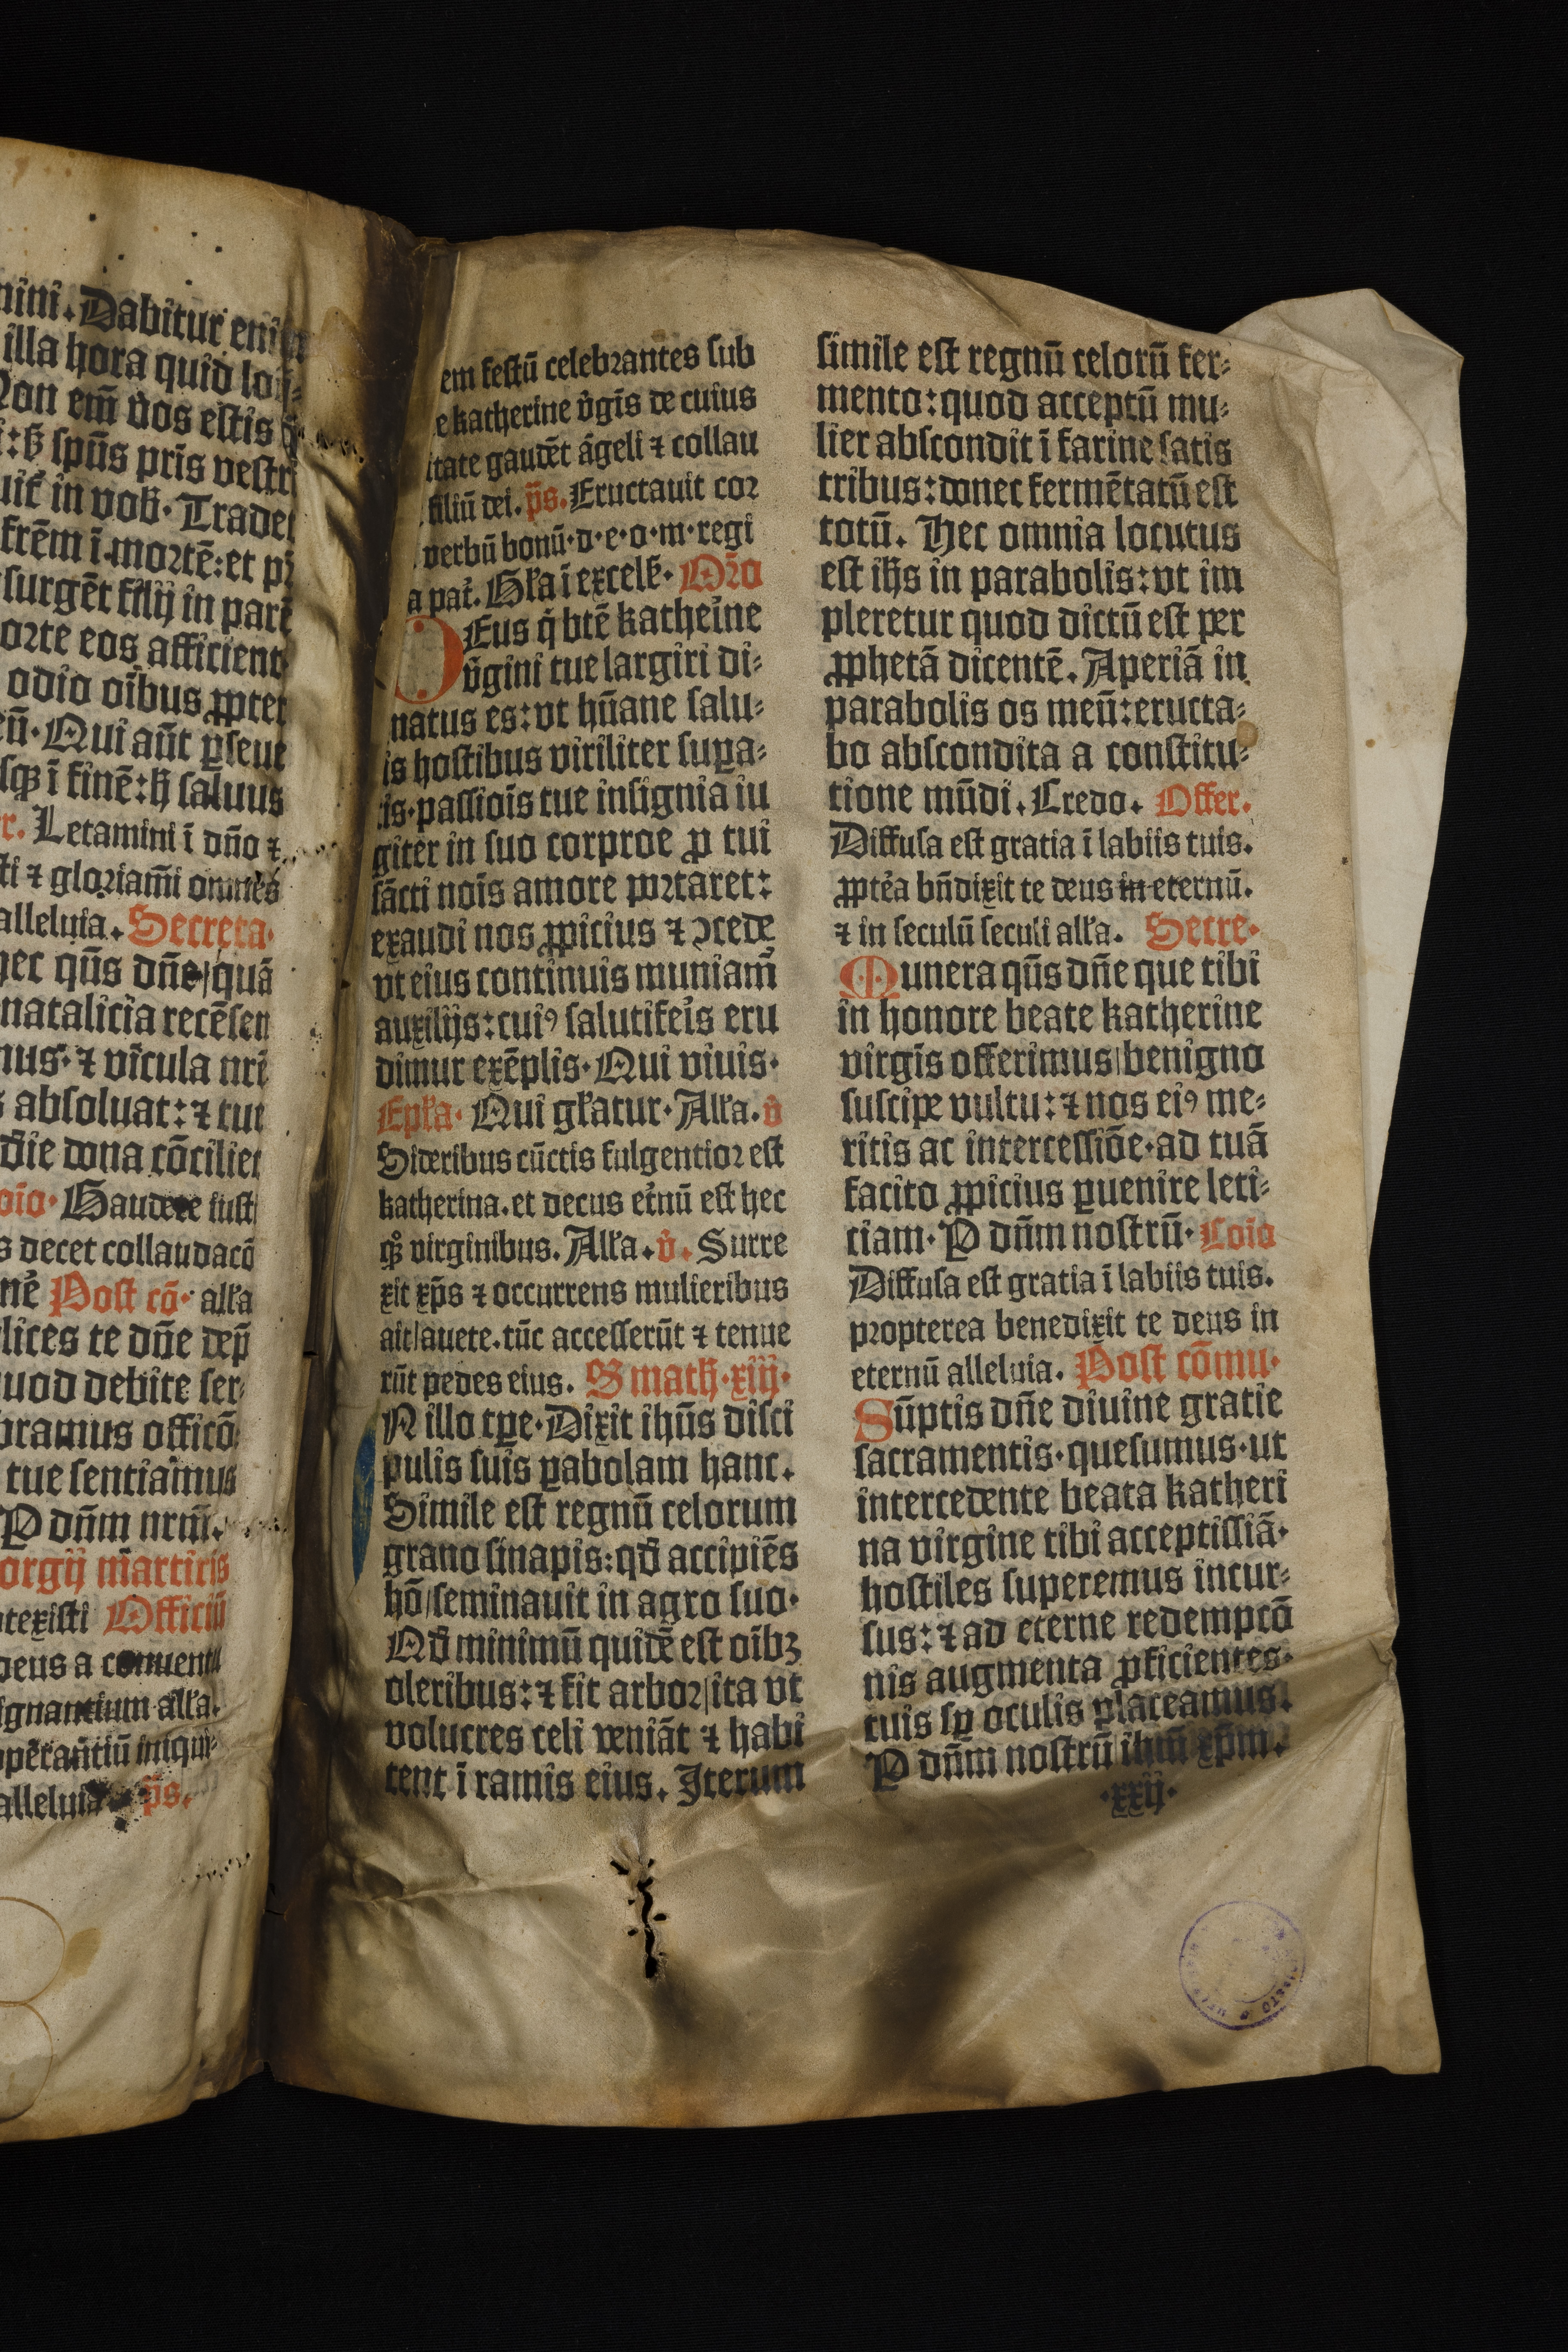 nini. Dabitur enim
illa hora quid loq̄-
Non em̄ vos estis q̄
spūs pr̄is vestri
in vob. Tradet
frēm ī mortē: et pr̄
surgēt filij in parē
orte eos afficient
odio oībus ꝓpter
Qui aūt ꝑseue
ī finē: h̄ saluus
r. Letamini ī dn̄o ⁊
ti ⁊ gloriam̄i omnes
alleluia. Secreta.
hec qs̄ dn̄e/quā
natalicia recēsen
mus. ⁊ vīcula nr̄i
s absoluat: ⁊ tue
die dona cōciliet
oīo. Gaudete iusti
s decet collaudacō
Post cō. alła
lices te dn̄e dep̄
uod debite ser
bramus officō
tue sentiamus
P dn̄m nr̄m.
orgij martiris
texisti Officiū
deus a conuentu
ignantium alła.
operātiū iniqui-
alleluia ps̄.
em festū celebrantes sub
e katherine v̄gīs de cuius
itate gaudēt āgeli ⁊ collau
filiū dei. ps̄. Eructauit cor
verbū bonū. d. e. o. m. regi
a pat̄. Gła ī excels. Or̄o
DEus q̄ btē katheīne
v̄gini tue largiri di-
natus es: vt hūane salu-
is hostibus viriliter suꝑa-
tis. passioīs tue insignia iu
giter in suo corproe ꝓ tui
sācti noīs amore portaret:
exaudi nos ꝓpicius ⁊ ↄcede
vt eius continuis muniam̄
auxilijs: cuiꝰ salutifeīs eru
dimur exēplis. Qui viuis.
Epła. Qui głatur. Alła. v̄
Sideribus cūctis fulgentior est
katherina. et decus et̄nū est hec
qꝫ virginibus. Alła. v̄. Surre
xit xp̄s ⁊ occurrens mulieribus
ait/auete. tūc accesserūt ⁊ tenue
rūt pedes eius. S math. xiij.
N illo tꝑe. Dixit ihūs disci
pulis suis ꝑabolam hanc.
Simile est regnū celorum
grano sinapis: qd̄ accipiēs
hō/seminauit in agro suo.
Qd̄ minimū quidē est oībꝫ
oleribus: ⁊ fit arbor/ita vt
volucres celi veniāt ⁊ habi
tent ī ramis eius. Iterum
simile est regnū celorū fer-
mento: quod acceptū mu-
lier abscondit ī farine satis
tribus: donec fermētatū est
totū. Hec omnia locutus
est ih̄s in parabolis: vt im
pleretur quod dictū est per
ꝓphetā dicentē. Aperiā in
parabolis os meū: eructa-
bo abscondita a constitu-
tione mūdi. Credo. Offer.
Diffusa est gratia ī labiis tuis.
ꝓptēa bn̄dixit te deus in eternū.
⁊ in seculū seculi alła. Secre.
Munera qs̄ dn̄e que tibi
in honore beate katherine
virgīs offerimus/benigno
suscipe vultu: ⁊ nos eiꝰ me-
ritis ac intercessiōe. ad tuā
facito ꝓpicius ꝑuenire leti-
ciam. P dn̄m nostrū. Coīo
Diffusa est gratia ī labiis tuis.
propterea benedixit te deus in
eternū alleluia. Post cōmu.
Sūptis dn̄e diuine gratie
sacramentis. quesumus. ut
intercedente beata katheri
na virgine tibi acceptissiā.
hostiles superemus incur-
sus: ⁊ ad eterne redempcō
nis augmenta ꝓficientes.
tuis sꝑ oculis placeamus.
P dn̄m nostrū ihm̄ xp̄m.
.xxij.